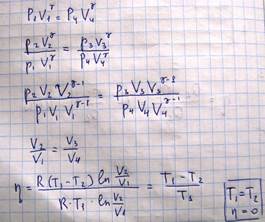 p₁V₁^γ = p₄V₄^γ
p₂V₂^γ / p₁V₁^γ = p₃V₃^γ / p₄V₄^γ
p₂V₂V₂^(γ-1) / p₁V₁V₁^(γ-1) = p₃V₃V₃^(γ-1) / p₄V₄V₄^(γ-1)
V₂/V₁ = V₃/V₄
η = R(T₁-T₂) ln V₂/V₁ / R·T₁·ln V₂/V₁ = T₁-T₂ / T₁
T₁=T₂
η=0